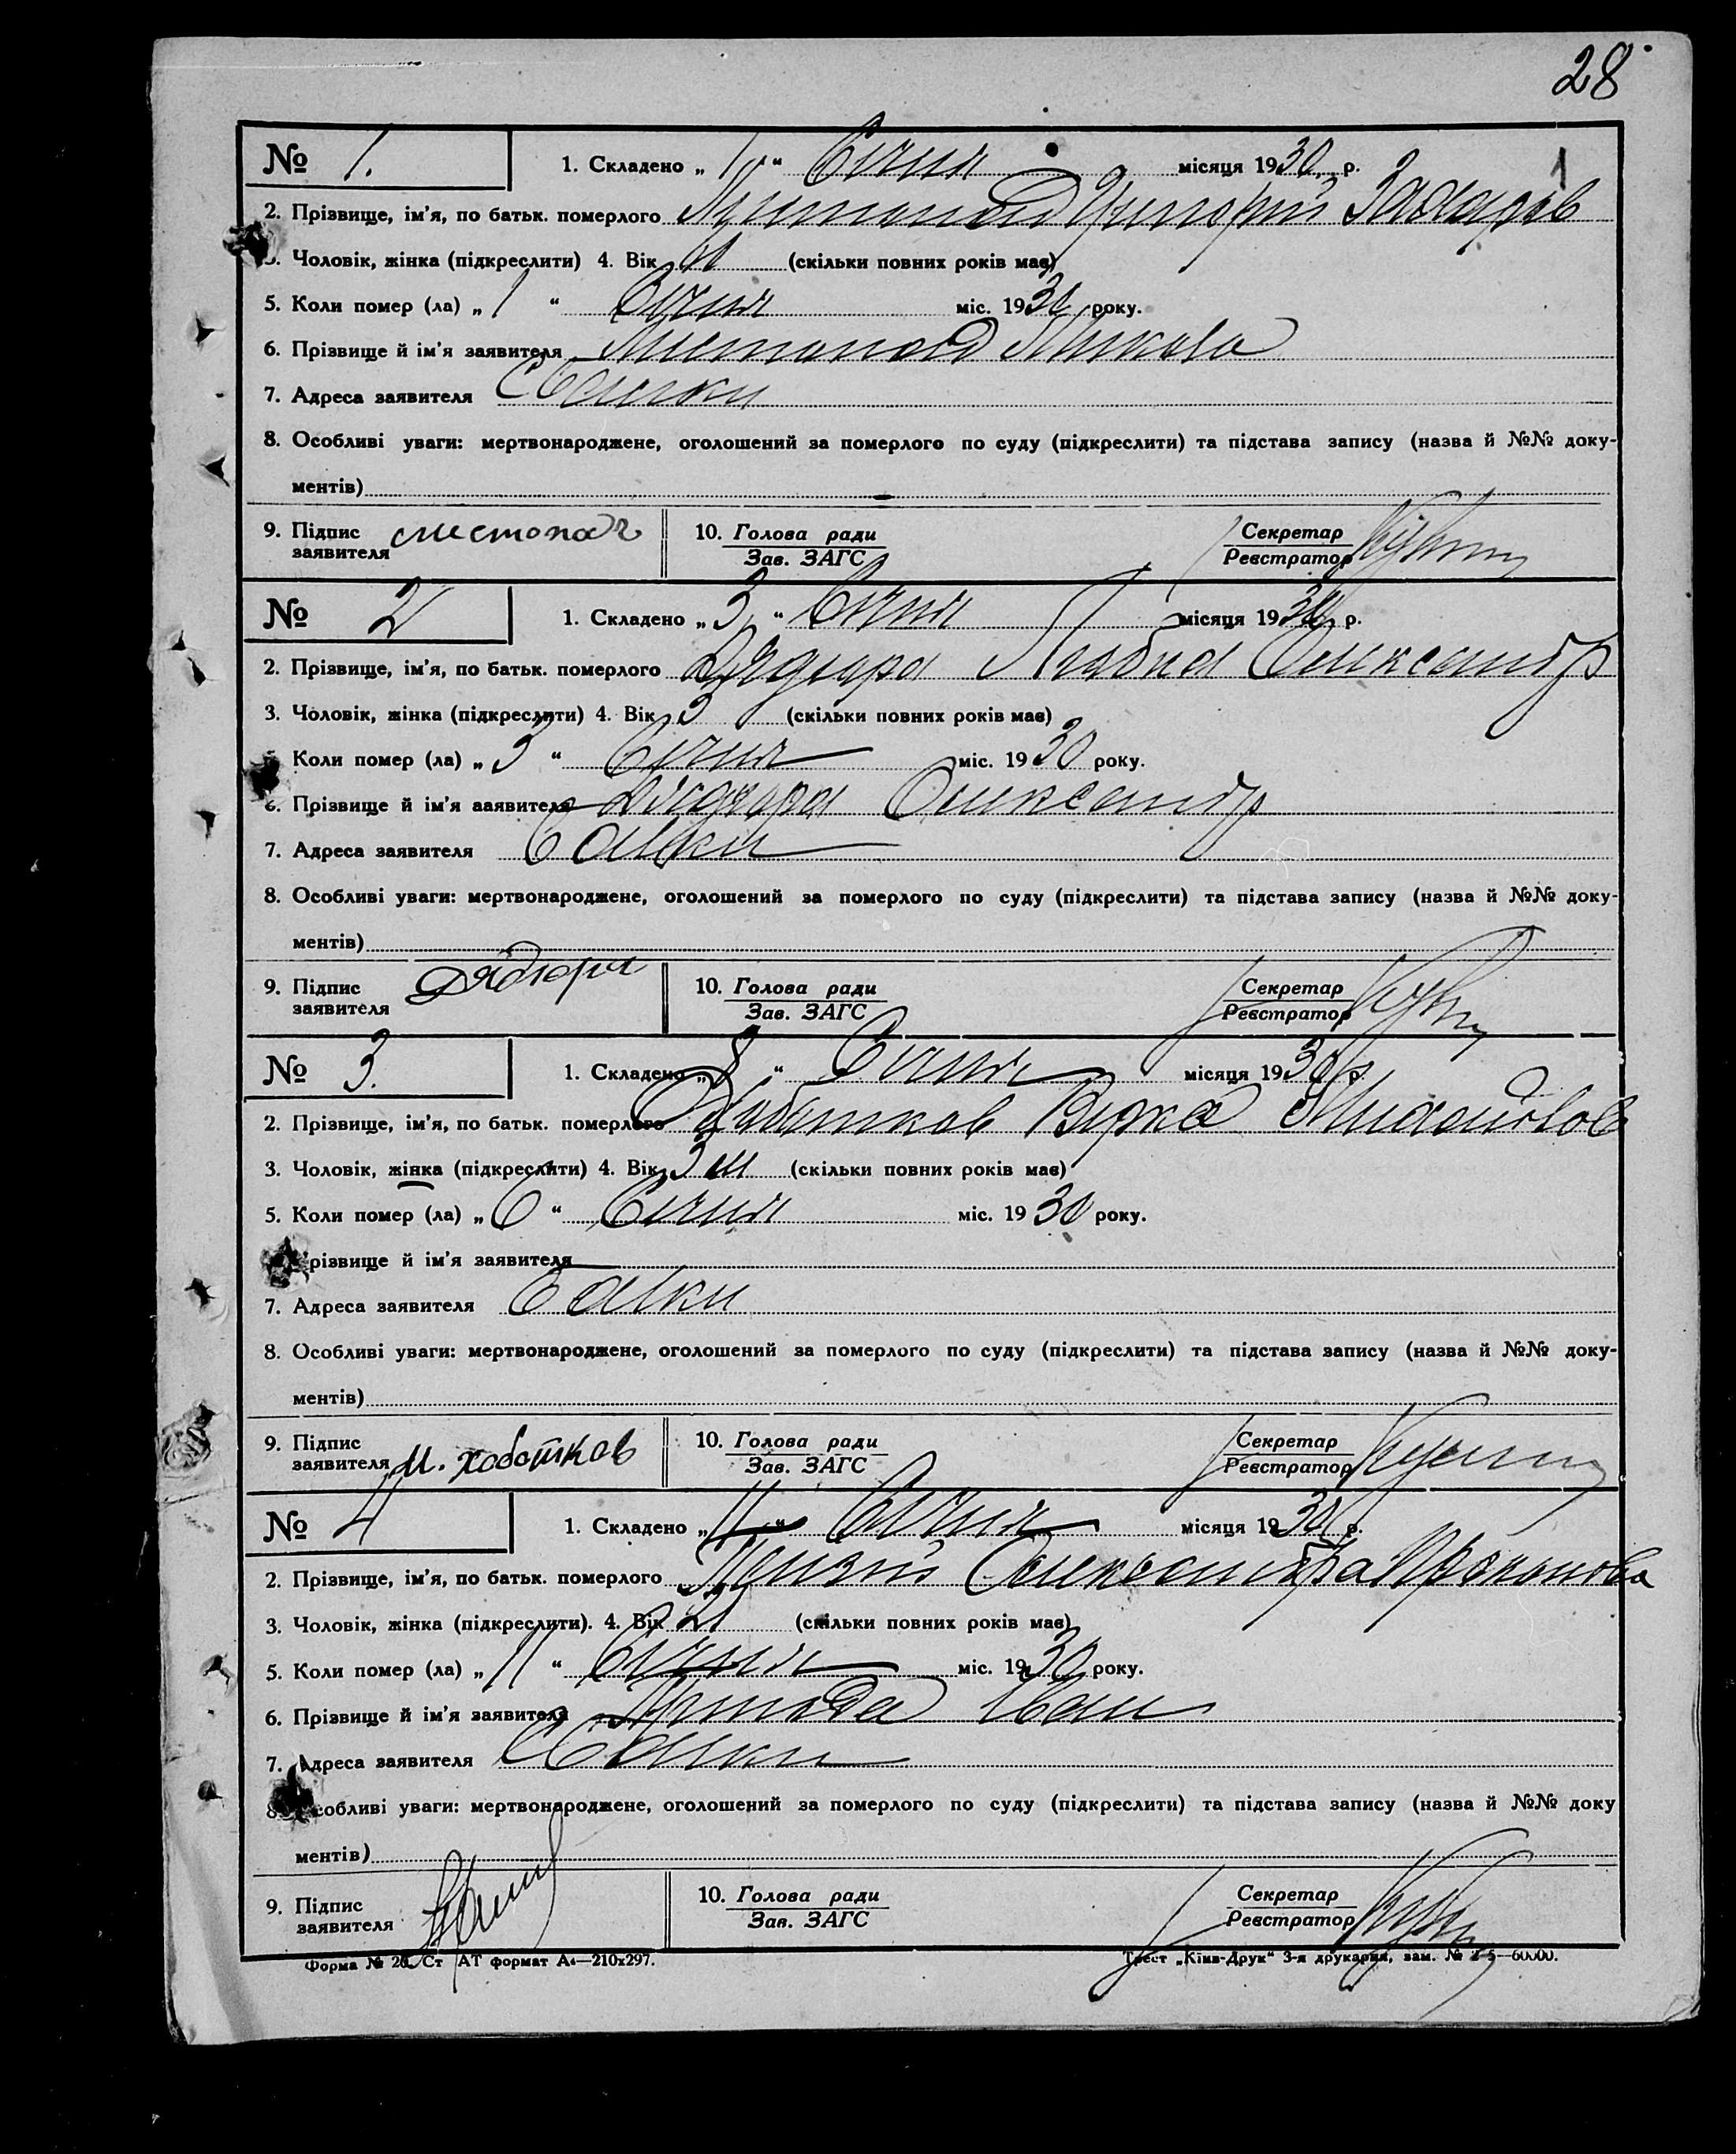 28
№ 1. 1. Складено „ 1 “ Січня місяця 1930 р. 1
2. Прізвище, ім’я, по батьк. померлого Григорій Захаров
3. Чоловік, жінка (підкреслити) 4. Вік (скільки повних років має)
5. Коли помер (ла) „ 1 “ Січня міс. 1930 року.
6. Прізвище й ім’я заявителя Листопад Микола
7. Адреса заявителя
8. Особливі уваги: мертвонароджене, оголошений за померлого по суду (підкреслити) та підстава запису (назва й №№ доку-
ментів)
9. Підпис 10. Голова ради Секретар
заявителя листопад Зав. ЗАГС Реєстратор
№ 2 1. Складено „ 3 “ Січня місяця 1930 р.
2. Прізвище, ім’я, по батьк. померлого Дядюра Олександр
3. Чоловік, жінка (підкреслити) 4. Вік 3 (скільки повних років має)
5. Коли помер (ла) „ 3 “ Січня міс. 1930 року.
6. Прізвище й ім’я ааявителя Дядюра Олександр
7. Адреса заявителя Сальки
8. Особливі уваги: мертвонароджене, оголошений за померлого по суду (підкреслити) та підстава запису (назва й №№ доку-
ментів)
9. Підпис Дядюра 10. Голова ради Секретар
заявителя Зав. ЗАГС Реєстратор
№ 3. 1. Складено „ 8 “ Січня місяця 1930 р.
2. Прізвище, ім’я, по батьк. померлого
3. Чоловік, жінка (підкреслити) 4. Вік 3 м (скільки повних років має)
5. Коли помер (ла) „ 6 “ Січня міс. 1930 року.
Прізвище й ім’я заявителя
7. Адреса заявителя Сальки
8. Особливі уваги: мертвонароджене, оголошений за померлого по суду (підкреслити) та підстава запису (назва й №№ доку-
ментів)
9. Підпис 10. Голова ради Секретар
заявителя М. хоботков Зав. ЗАГС Реєстратор
№ 4 1. Складено „ 11 “ Січня місяця 1930 р.
2. Прізвище, ім’я, по батьк. померлого Олександра Прокопова
3. Чоловік, жінка (підкреслити). 4. Вік (скільки повних років має)
5. Коли помер (ла) „ 11 “ Січня міс. 1930 року.
6. Прізвище й ім’я заявителя Іван
7. Адреса заявителя
8. Особливі уваги: мертвонароджене, оголошений за померлого по суду (підкреслити) та підстава запису (назва й №№ доку
ментів)
9. Підпис 10. Голова ради Секретар
заявителя Зав. ЗАГС Реєстратор
Форма № 20. Ст АТ формат А4—210х297. Трест „Київ-Друк“ 3-я друкарня, зам. №